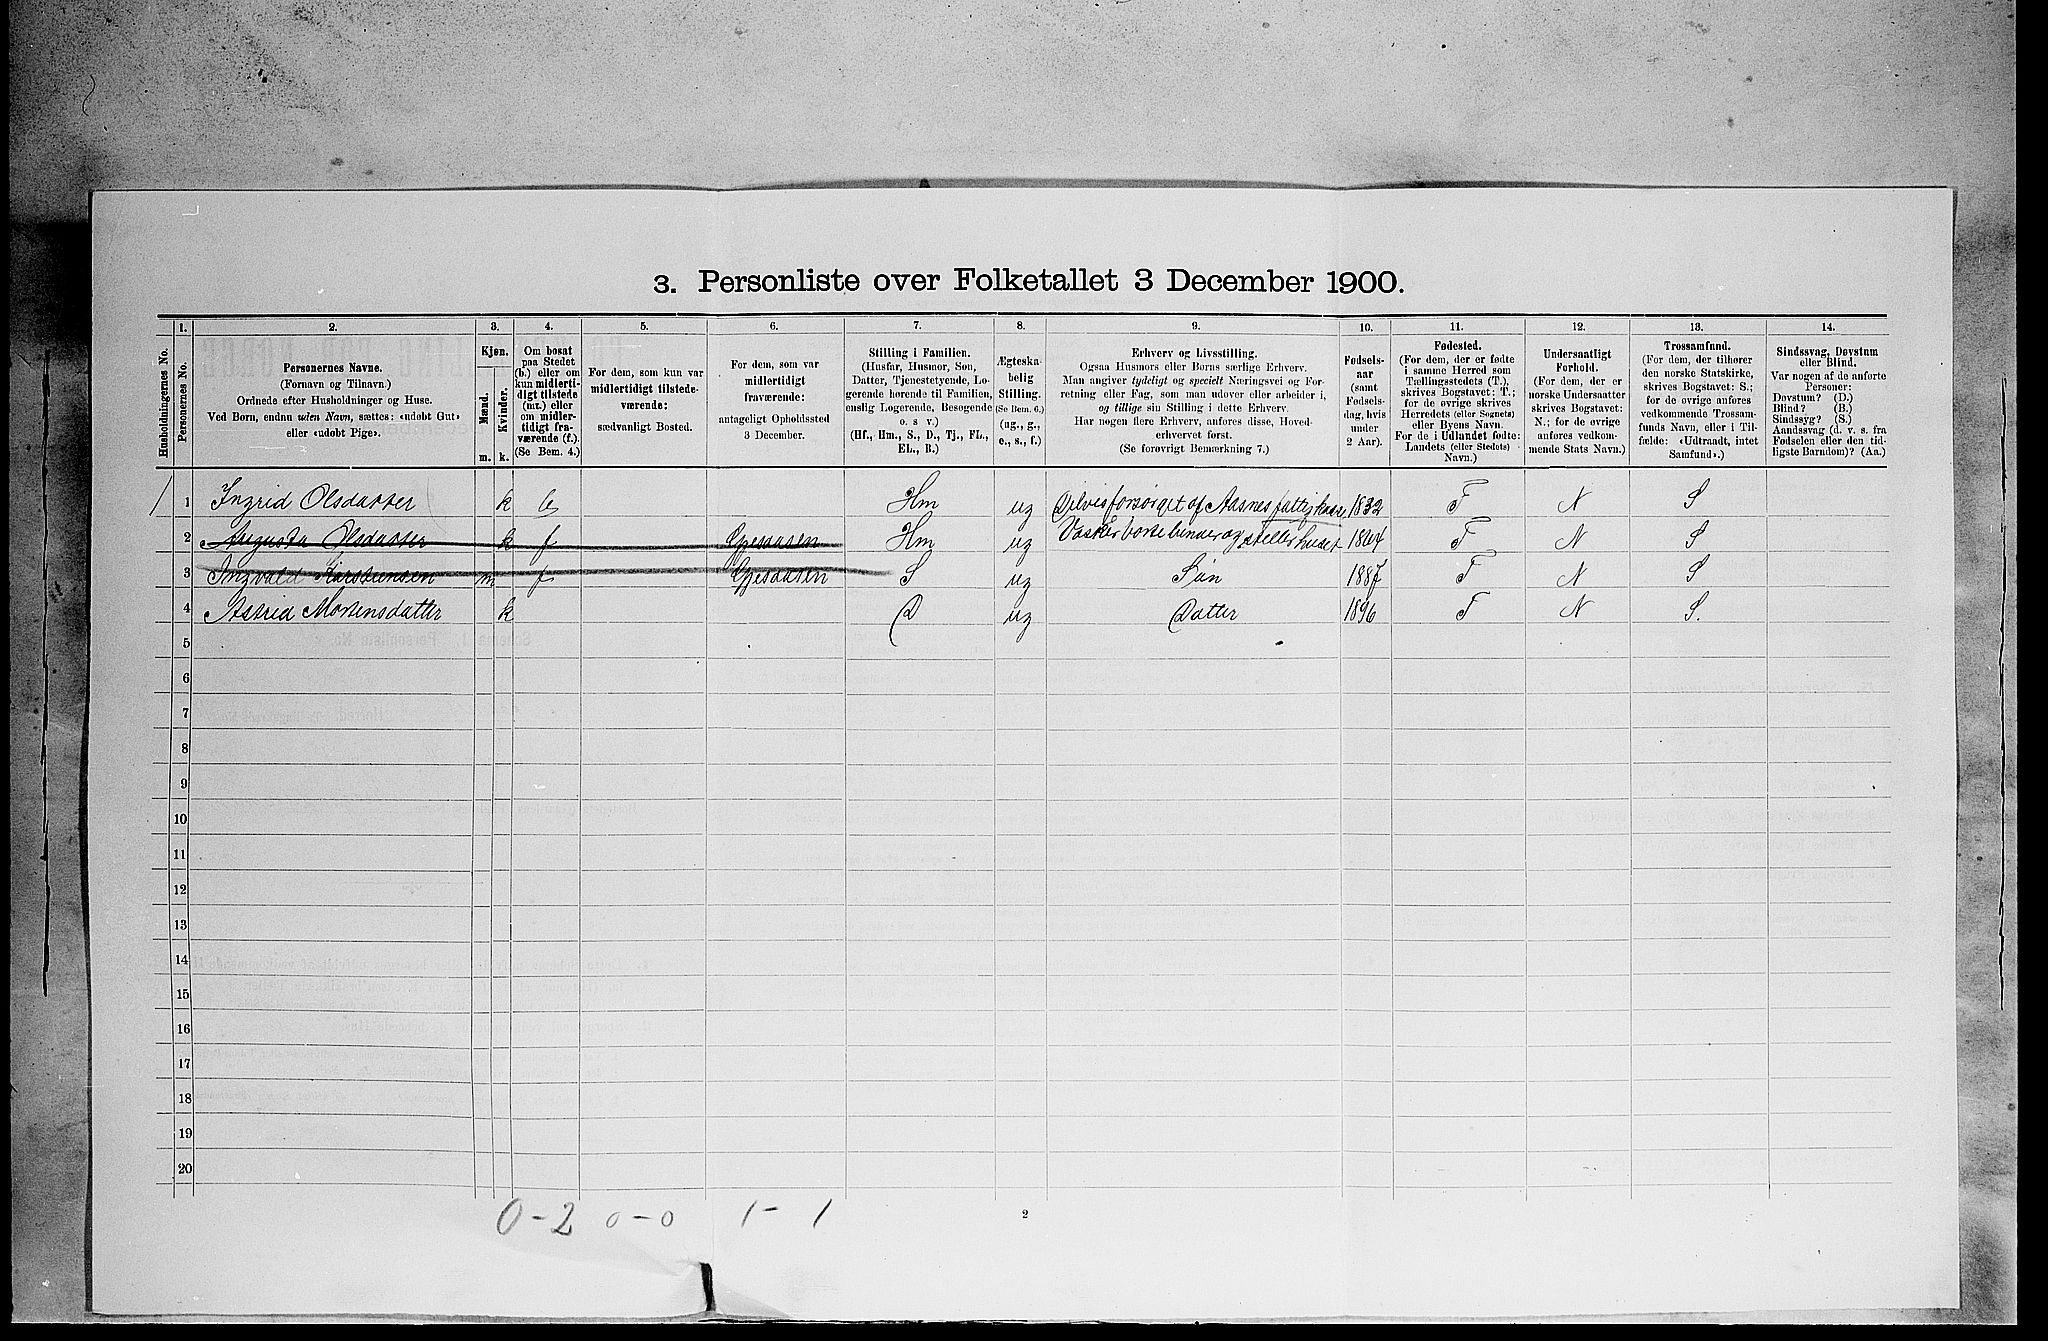 3. Personliste over Folketallet 3 December 1900.
1. 2. 3. 4. 5. 6. 7. 8. 9. 10. 11. 12. 13. 14.
Husholdningernes No.
Personernes No.
Personernes Navne.
(Fornavn og Tilnavn.)
Ordnede efter Husholdninger og Huse.
Ved Børn, endnu uden Navn, sættes: «udøbt Gut»
eller «udøbt Pige».
Kjøn.
Mænd.
Kvinder.
m. k.
Om bosat
paa Stedet
(b.) eller om
kun midlerti-
digt tilstede
(mt.) eller
om midler-
tidigt fra-
værende (f.).
(Se Bem. 4.)
For dem, som kun var
midlertidigt tilstede-
værende:
sædvanligt Bosted.
For dem, som var
midlertidigt
fraværende:
antageligt Opholdssted
3 December.
Stilling i Familien.
(Husfar, Husmor, Søn,
Datter, Tjenestetyende, Lo-
gerende hørende til Familien,
enslig Logerende, Besøgende
o. s. v.)
(Hf., Hm., S., D., Tj., FL.,
EL., B.)
Ægteska-
belig
Stilling.
(Se Bem. 6.)
(ug., g.,
e., s., f.)
Erhverv og Livsstilling.
Ogsaa Husmors eller Børns særlige Erhverv.
Man angiver tydeligt og specielt Næringsvei og For-
retning eller Fag, som man udøver eller arbeider i,
og tillige sin Stilling i dette Erhverv.
Har nogen flere Erhverv, anføres disse, Hoved-
erhvervet først.
(Se forøvrigt Bemærkning 7.)
Fødsels-
aar
(samt
Fødsels-
dag, hvis
under
2 Aar).
Fødested.
(For dem, der er fødte
i samme Herred som
Tællingsstedets (T.),
skrives Bogstavet: T.;
for de øvrige skrives
Herredets (eller Sognets)
eller Byens Navn.
For de i Udlandet fødte:
Landets (eller Stedets)
Navn.)
Undersaatligt
Forhold.
(For dem, der er
norske Undersaatter
skrives Bogstavet:
N.; for de øvrige
anføres vedkom-
mende Stats Navn.)
Trossamfund.
(For dem, der tilhører
den norske Statskirke,
skrives Bogstavet: S.;
for de øvrige anføres
vedkommende Trossam-
funds Navn, eller i Til-
fælde: «Udtraadt, intet
Samfund».)
Sindssvag, Døvstum
eller Blind.
Var nogen af de anførte
Personer:
Døvstum? (D.)
Blind? (B.)
Sindssyg? (S.)
Aandssvag (d. v. s. fra
Fødselen eller den tid-
ligste Barndom)? (Aa.)
1 Ingrid Olsdatter k b Hm ug Delvis forsørget af Aasnes fattigkasse 1832 T N S
2 Augusta Olsdatter k f Gjesaasen Hm ug Vasker børstebinder og steller huset 1864 T N S
3 Ingvald Karstensen m f Gjesaasen S ug Søn 1887 T N S
4 Astrid Mortensdatter k D ug Datter 1896 T N S.
5
6
7
8
9
10
11
12
13
14
15
16
17
18
19
20
0-2 0-0 1-1
2